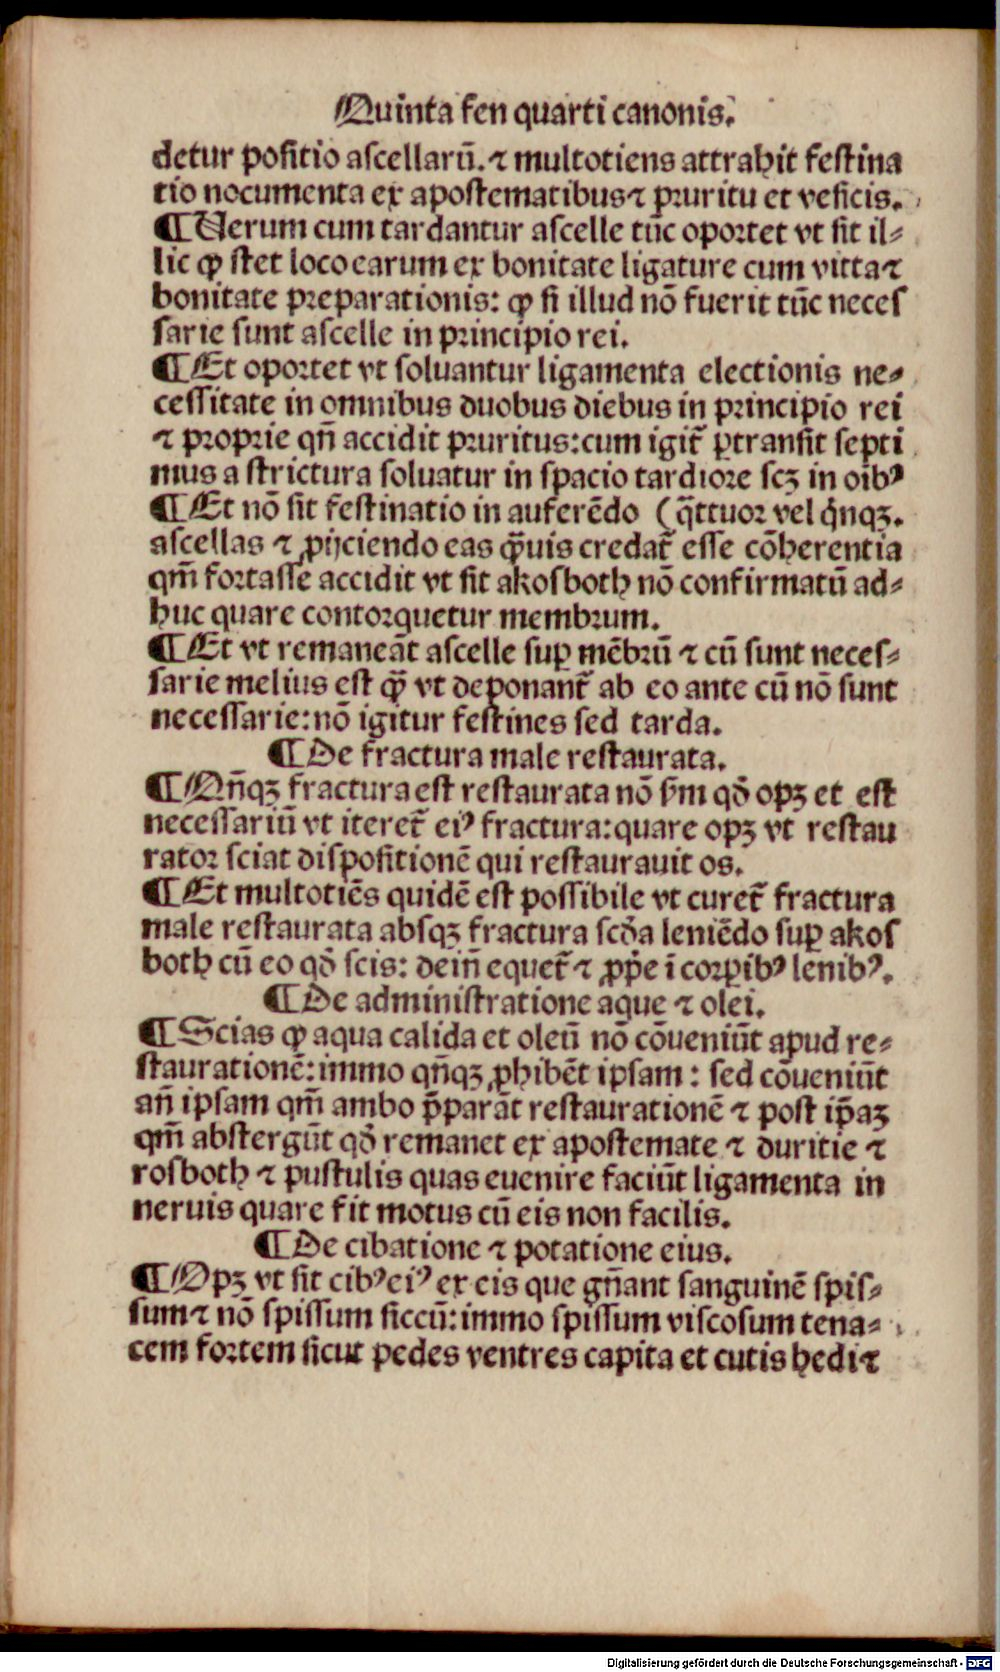 Quinta fen quarti canonis.
detur poſitio aſcellarū. ⁊ multotiens attrahit feſtina
tio nocumenta ex apoſtematibus⁊ pꝛuritu et veſicis.
¶ Verum cum tardantur aſcelle tūc opoꝛtet vt ſit il⸗
lic ꝙ ſtet loco earum ex bonitate ligature cum vitta⁊
bonitate pꝛeparationis: ꝙ ſi illud nō fuerit tūc neceſ
ſarie ſunt aſcelle in pꝛincipio rei.
¶ Et opoꝛtet vt ſoluantur ligamenta electionis ne⸗
ceſſitate in omnibus duobus diebus in pꝛincipio rei
⁊ pꝛopꝛie qn̄ accidit pꝛuritus: cum igit̄ ꝑtranſit ſepti
mus a ſtrictura ſoluatur in ſpacio tardioꝛe ſcꝫ in oībꝰ
¶ Et nō ſit feſtinatio in auferēdo (q̄ttuoꝛ vel q̇nqꝫ.
aſcellas ⁊ ꝓijciendo eas q̄̈uis credat̄ eſſe cōherentia
qm̄ foꝛtaſſe accidit vt ſit akoſboth nō confirmatū ad⸗
huc quare contoꝛquetur membꝛum.
¶ Et vt remaneāt aſcelle ſuꝑ mēbꝛū ⁊ cū ſunt neceſ⸗
ſarie melius eſt q̄̈ vt deponant̄ ab eo ante cū nō ſunt
neceſſarie: nō igitur feſtines ſed tarda.
¶ De fractura male reſtaurata.
¶ Qn̄qꝫ fractura eſt reſtaurata nō ẜm qď opꝫ et eſt
neceſſariū vt iteret̄ eiꝰ fractura: quare opꝫ vt reſtau
ratoꝛ ſciat diſpoſitionē qui reſtaurauit os.
¶ Et multotiēs quidē eſt poſſibile vt curet̄ fractura
male reſtaurata abſqꝫ fractura ſcďa leniēdo ſuꝑ akoſ
both cū eo qď ſcis: dein̄ equet̄ ⁊ ꝓp̄e ī coꝛꝑibꝰ lenibꝰ.
¶ De adminiſtratione aque ⁊ olei.
¶ Scias ꝙ aqua calida et oleū nō cōueniūt apud re⸗
ſtaurationē: immo qn̄qꝫ ꝓhibēt ipſam: ſed cōueniūt
an̄ ipſam qm̄ ambo p̄parāt reſtaurationē ⁊ poſt ip̄aꝫ
qm̄ abſtergūt qď remanet ex apoſtemate ⁊ duritie ⁊
roſboth ⁊ puſtulis quas euenire faciūt ligamenta in
neruis quare fit motus cū eis non facilis.
¶ De cibatione ⁊ potatione eius.
¶ Opꝫ vt ſit cibꝰ eiꝰ ex eis que gn̄ant ſanguinē ſpiſ⸗
ſum⁊ nō ſpiſſum ſiccū: immo ſpiſſum viſcoſum tena⸗
cem foꝛtem ſicut pedes ventres capita et cutis hedi⁊
Digitalisierung gefördert durch die Deutsche Forschungsgemeinschaft - DFG